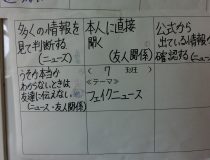 多くの情報を
見て判断する
(ニュース)
本人に直接
聞く
(友人関係)
公式から
出ている情報で
確認する
(ニュース)
うそか本当か
わからないときは
友達に伝えない
(ニュース・友人関係)
〈 7 班〉
≪テーマ≫
フェイクニュース